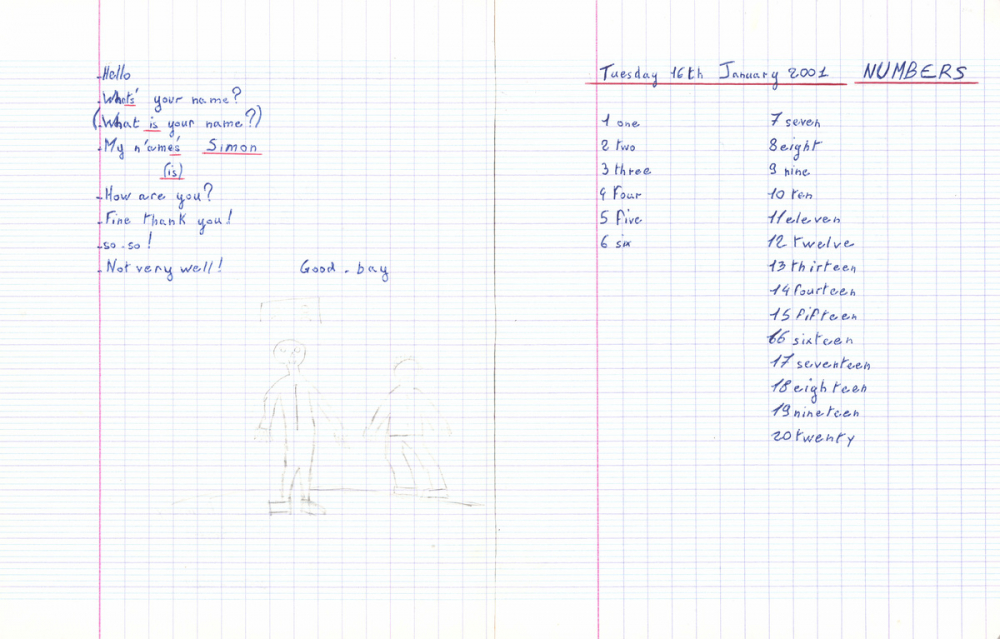 Hello
Whats' your name?
(What is your name?)
My n'ame's Simon
(is)
How are you?
Fine thank you!
so.so!
Not very well! Good.bay
Tuesday 16th January 2001 NUMBERS
1 one
2 two
3 three
4 four
5 five
6 six
7 seven
8 eight
9 nine
10 ten
11 eleven
12 twelve
13 thirteen
14 fourteen
15 fifteen
16 sixteen
17 seventeen
18 eighteen
19 nineteen
20 twenty